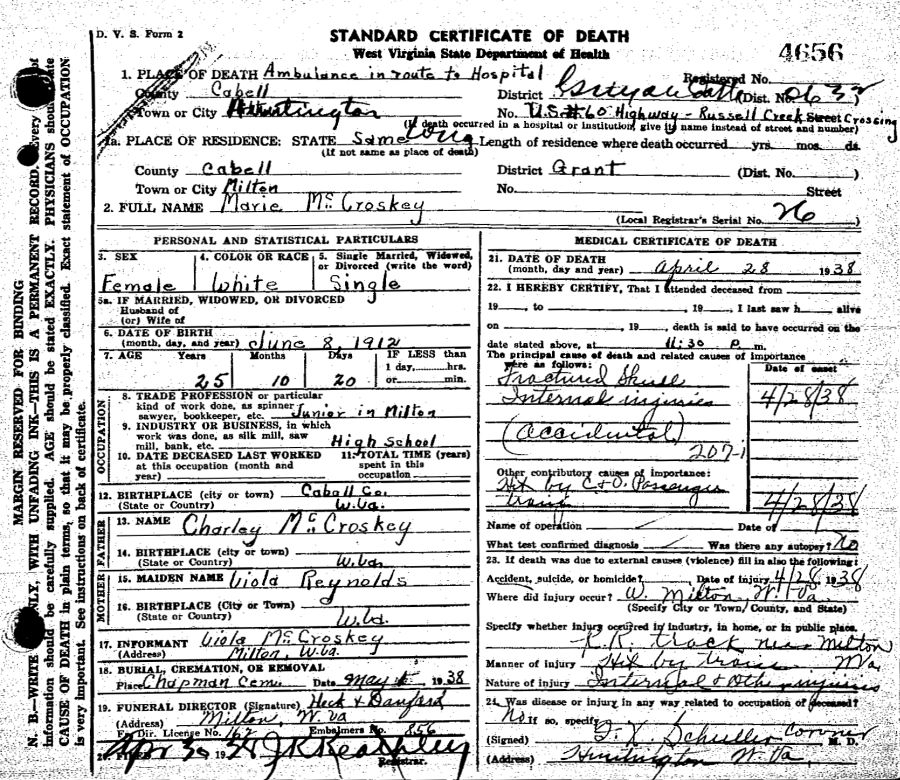 D. V. S. Form 2
STANDARD CERTIFICATE OF DEATH
West Virginia State Department of Health
4656
1. PLACE OF DEATH Ambulance in route to Hospital
Registered No.
County Cabell
District Guyandotte (Dist. No. 0632
Town or City Huntington
No. U.S. #60 Highway - Russell Creek Street Crossing
(If death occurred in a hospital or institution, give its name instead of street and number)
1a. PLACE OF RESIDENCE: STATE Same W.Va Length of residence where death occurred yrs. mos. ds.
(If not same as place of death)
County Cabell
District Grant (Dist. No. )
Town or City Milton
No. Street
2. FULL NAME Marie McCroskey
(Local Registrar's Serial No. 26 )
PERSONAL AND STATISTICAL PARTICULARS
3. SEX Female
4. COLOR OR RACE White
5. Single Married, Widowed, or Divorced (write the word) Single
5a. IF MARRIED, WIDOWED, OR DIVORCED
Husband of
(or) Wife of
6. DATE OF BIRTH
(month, day, and year) June 8, 1912
7. AGE Years Months Days IF LESS than
1 day, hrs.
25 10 20 or min.
OCCUPATION
8. TRADE PROFESSION or particular
kind of work done, as spinner,
sawyer, bookkeeper, etc. Junior in Milton
9. INDUSTRY OR BUSINESS, in which
work was done, as silk mill, saw
mill, bank, etc. High School
10. DATE DECEASED LAST WORKED
at this occupation (month and
year)
11. TOTAL TIME (years)
spent in this
occupation
12. BIRTHPLACE (city or town) Cabell Co.
(State or Country) W.Va.
FATHER
13. NAME Charley McCroskey
14. BIRTHPLACE (city or town)
(State or Country) W.Va.
MOTHER
15. MAIDEN NAME Viola Reynolds
16. BIRTHPLACE (City or Town)
(State or Country) W.Va.
17. INFORMANT Viola McCroskey
(Address) Milton, W.Va.
18. BURIAL, CREMATION, OR REMOVAL
Place Chapman Cem. Date May 1938
19. FUNERAL DIRECTOR (Signature) Heck &
(Address) Milton, W.Va
Fu-Dir. License No. 162 Embalmers No. 856
20. Apr 30 19 J K Keathley
Registrar.
MEDICAL CERTIFICATE OF DEATH
21. DATE OF DEATH
(month, day and year) April 28 1938
22. I HEREBY CERTIFY, That I attended deceased from
19 , to , 19 , I last saw h alive
on , 19 , death is said to have occurred on the
date stated above, at 11:30 P. m.
The principal cause of death and related causes of importance
were as follows:
Date of onset
Fractured Skull
Internal injuries
4/28/38
(accidental)
207-1
Other contributory causes of importance:
Hit by C&O. Passenger
train
4/28/38
Name of operation Date of
What test confirmed diagnosis Was there any autopsy? No
23. If death was due to external causes (violence) fill in also the following:
Accident, suicide, or homicide? Date of injury 4/28 1938
Where did injury occur? W. Milton W. Va.
(Specify City or Town, County, and State)
Specify whether injury occurred in industry, in home, or in public place.
R.R. track near Milton
W Va
Manner of injury Hit by train
Nature of injury Internal & Other injuries
24. Was disease or injury in any way related to occupation of deceased?
No if so, specify
(Signed) Coroner M. D.
(Address) Huntington W. Va
MARGIN RESERVED FOR BINDING
N. B.—WRITE ONLY, WITH UNFADING INK—THIS IS A PERMANENT RECORD. Every
information should be carefully supplied. AGE should be stated EXACTLY. PHYSICIANS should state
CAUSE OF DEATH in plain terms, so that it may be properly classified. Exact statement of OCCUPATION
is very important. See instructions on back of certificate.